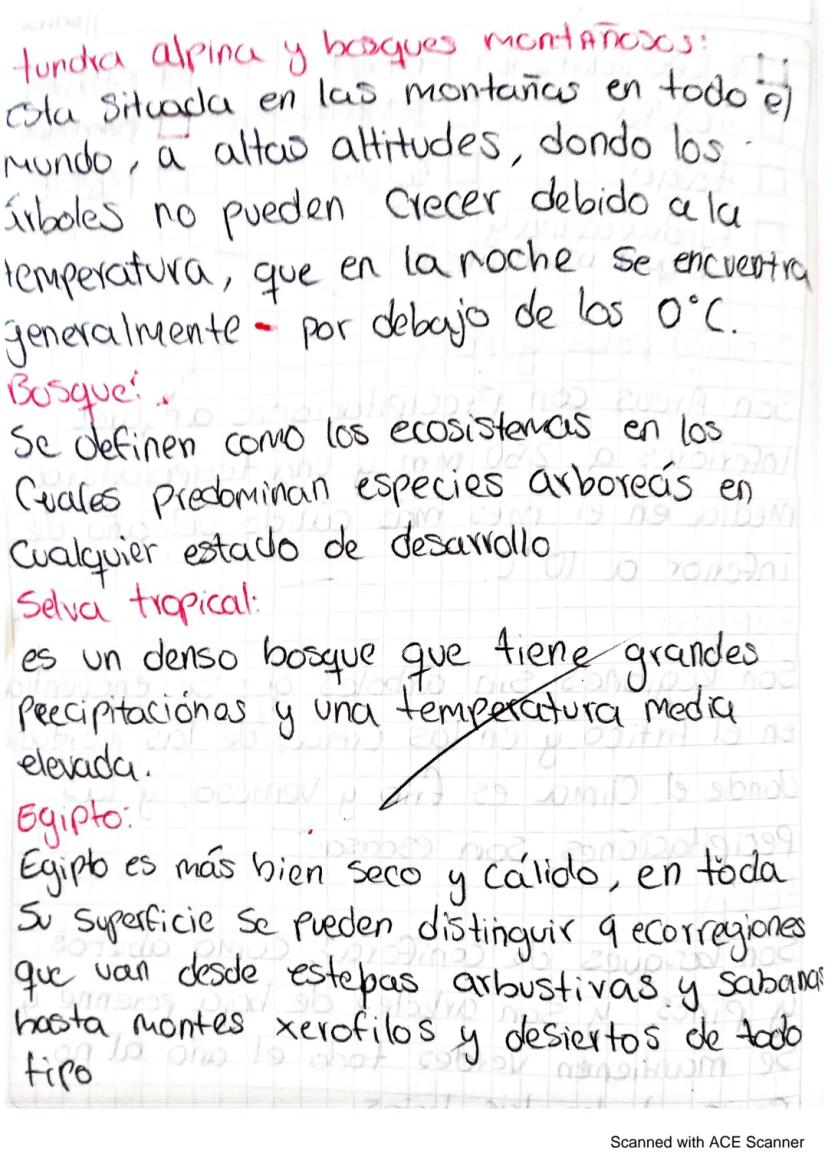 tundra alpina y bosques montAñosos:
esta situada en las montañas en todo el
mundo, a altas altitudes, dondo los
árboles no pueden crecer debido a la
temperatura, que en la noche se encuentra
generalmente - por debajo de los 0°C.
Bosque:
Se definen como los ecosistemas en los
Cuales predominan especies arboreás en
cualquier estado de desarrollo
Selva tropical:
es un denso bosque que tiene grandes
Peecipitaciónes y una temperatura media
elevada.
Egipto:
Egipto es más bien seco y cálido, en toda
Su superficie se pueden distinguir 9 ecorregiones
que van desde estepas arbustivas y sabanas
hasta montes xerofilos y desiertos de todo
tipo
Scanned with ACE Scanner